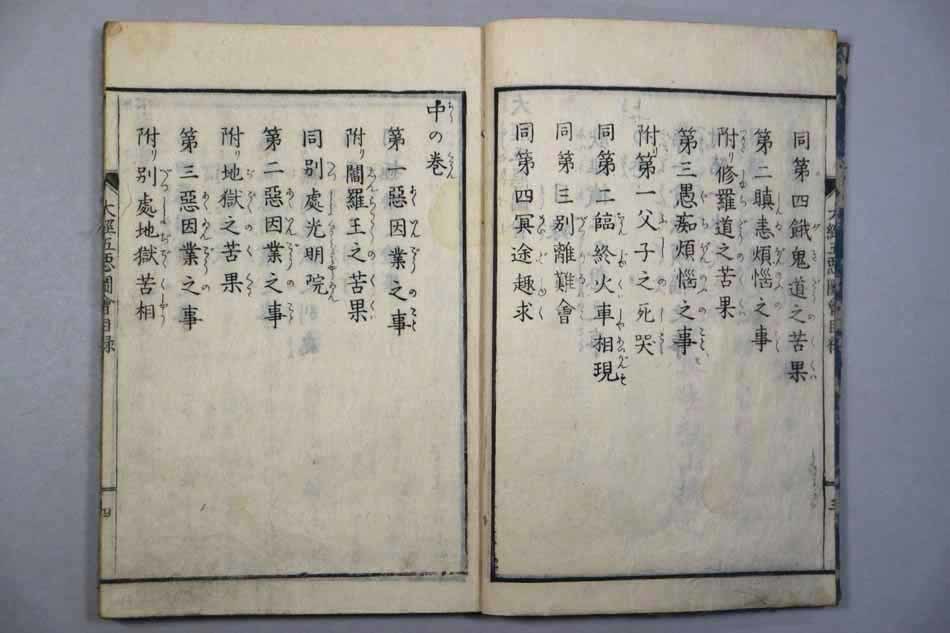 同第四餓鬼道之苦果
第二瞋恚煩惱之事
附リ修羅道之苦果
第三愚痴煩惱之事
附リ第一父子之死哭
同第二臨終火車相現
同第三別離難會
同第四冥途趣求
三
中の巻
第一惡因業之事
附リ閻羅王之苦果
同別處光明院
第二惡因業之事
附リ地獄之苦果
第三惡因業之事
附リ別處地獄苦相
大經五惡圖會目録
四